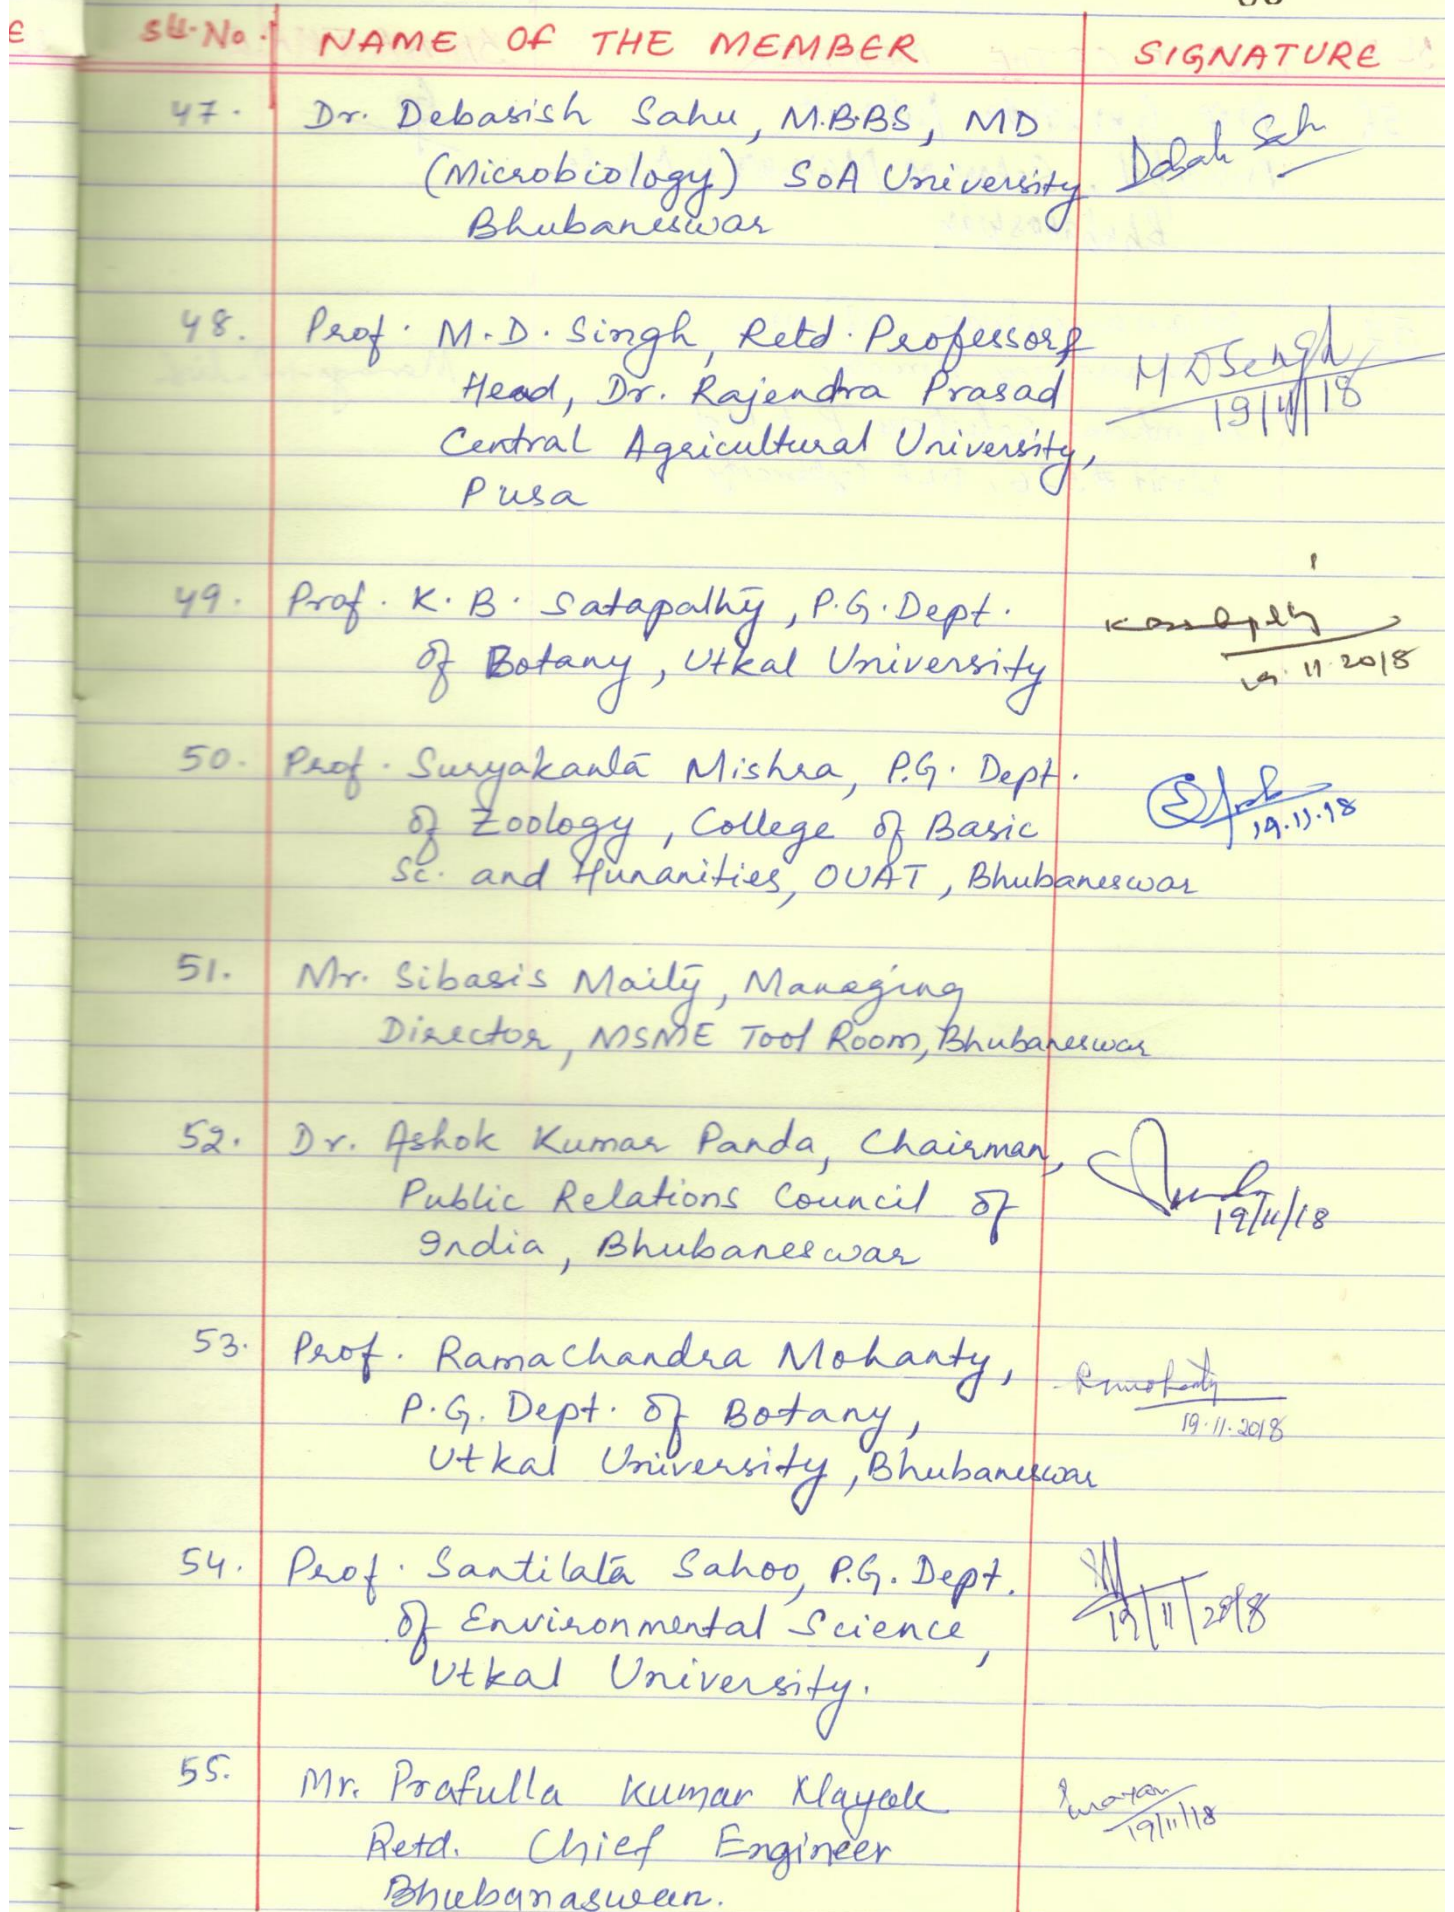 E
Sll.No. NAME OF THE MEMBER SIGNATURE
47. Dr. Debasish Sahu, M.B.BS, MD
(Microbiology) SOA University
Bhubaneswar
48. Prof. M.D. Singh, Retd. Professor &
Head, Dr. Rajendra Prasad
Central Agricultural University,
Pusa
MDSingh
19/11/18
49. Prof. K.B. Satapathy, P.G. Dept.
of Botany, Utkal University
19.11.2018
50. Prof. Suryakanta Mishra, P.G. Dept.
of Zoology, College of Basic
Sc. and Hunanities, OUAT, Bhubaneswar
19.11.18
51. Mr. Sibasis Maity, Managing
Director, MSME Tool Room, Bhubaneswar
52. Dr. Ashok Kumar Panda, Chairman,
Public Relations Council of
India, Bhubaneswar
19/11/18
53. Prof. Ramachandra Mohanty,
P.G. Dept. of Botany,
Utkal University, Bhubaneswar
Rmohanty
19.11.2018
54. Prof. Santilata Sahoo, P.G. Dept.
of Environmental Science,
Utkal University.
19/11/2018
55. Mr. Prafulla Kumar Nayak
Retd. Chief Engineer
Bhubanaswar.
19/11/18